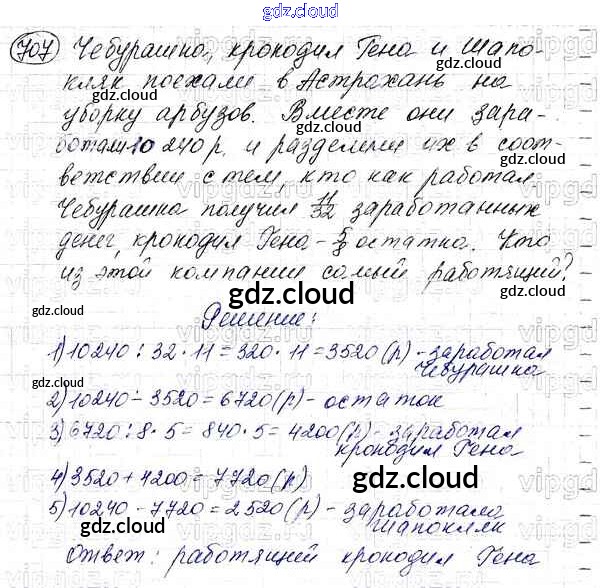 gdz.cloud
707 Чебурашка, крокодил Гена и Шапо-
кляк поехали в Астрахань на
уборку арбузов. Вместе они зара-
ботали 10 240 р. и разделили их в соот-
ветствии с тем, кто как работал.
Чебурашка получил 11/32 заработанных
денег, крокодил Гена - 5/8 остатка. Кто
из этой компании самый работящий?
gdz.cloud
Решение:
1) 10240 : 32 · 11 = 320 · 11 = 3520 (р) - заработал
Чебурашка
2) 10240 - 3520 = 6720 (р) - остаток
3) 6720 : 8 · 5 = 840 · 5 = 4200 (р) - заработал
крокодил Гена
4) 3520 + 4200 = 7720 (р)
5) 10240 - 7720 = 2520 (р) - заработала
Шапокляк
Ответ: работящий крокодил Гена